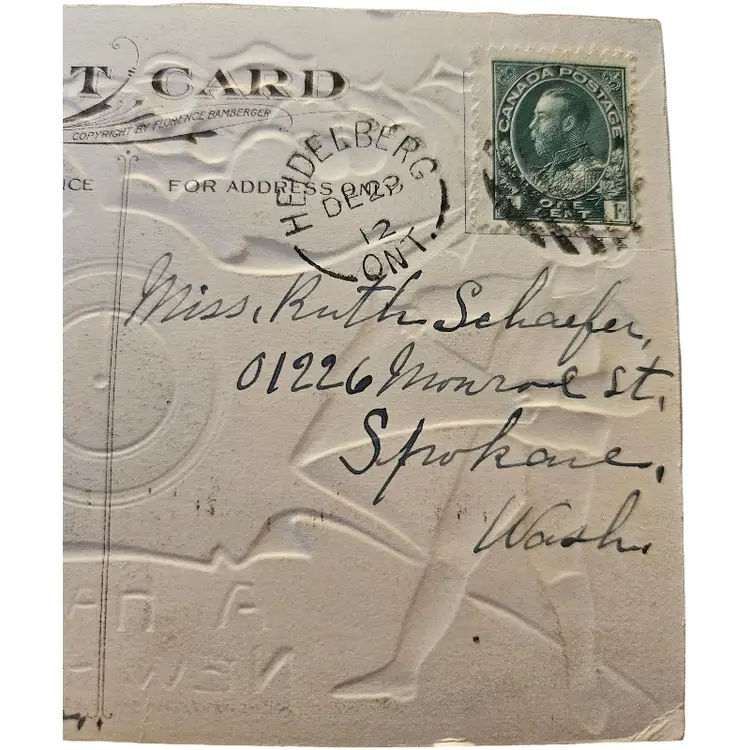 T CARD
COPYRIGHT BY FLORENCE BAMBERGER
NCE
FOR ADDRESS ONLY
HEIDELBERG
DE 23
12
ONT.
CANADA POSTAGE
ONE
CENT
1
Miss, Ruth Schaefer,
01226 Monroe St,
Spokane,
Wash.
A HA
NEW